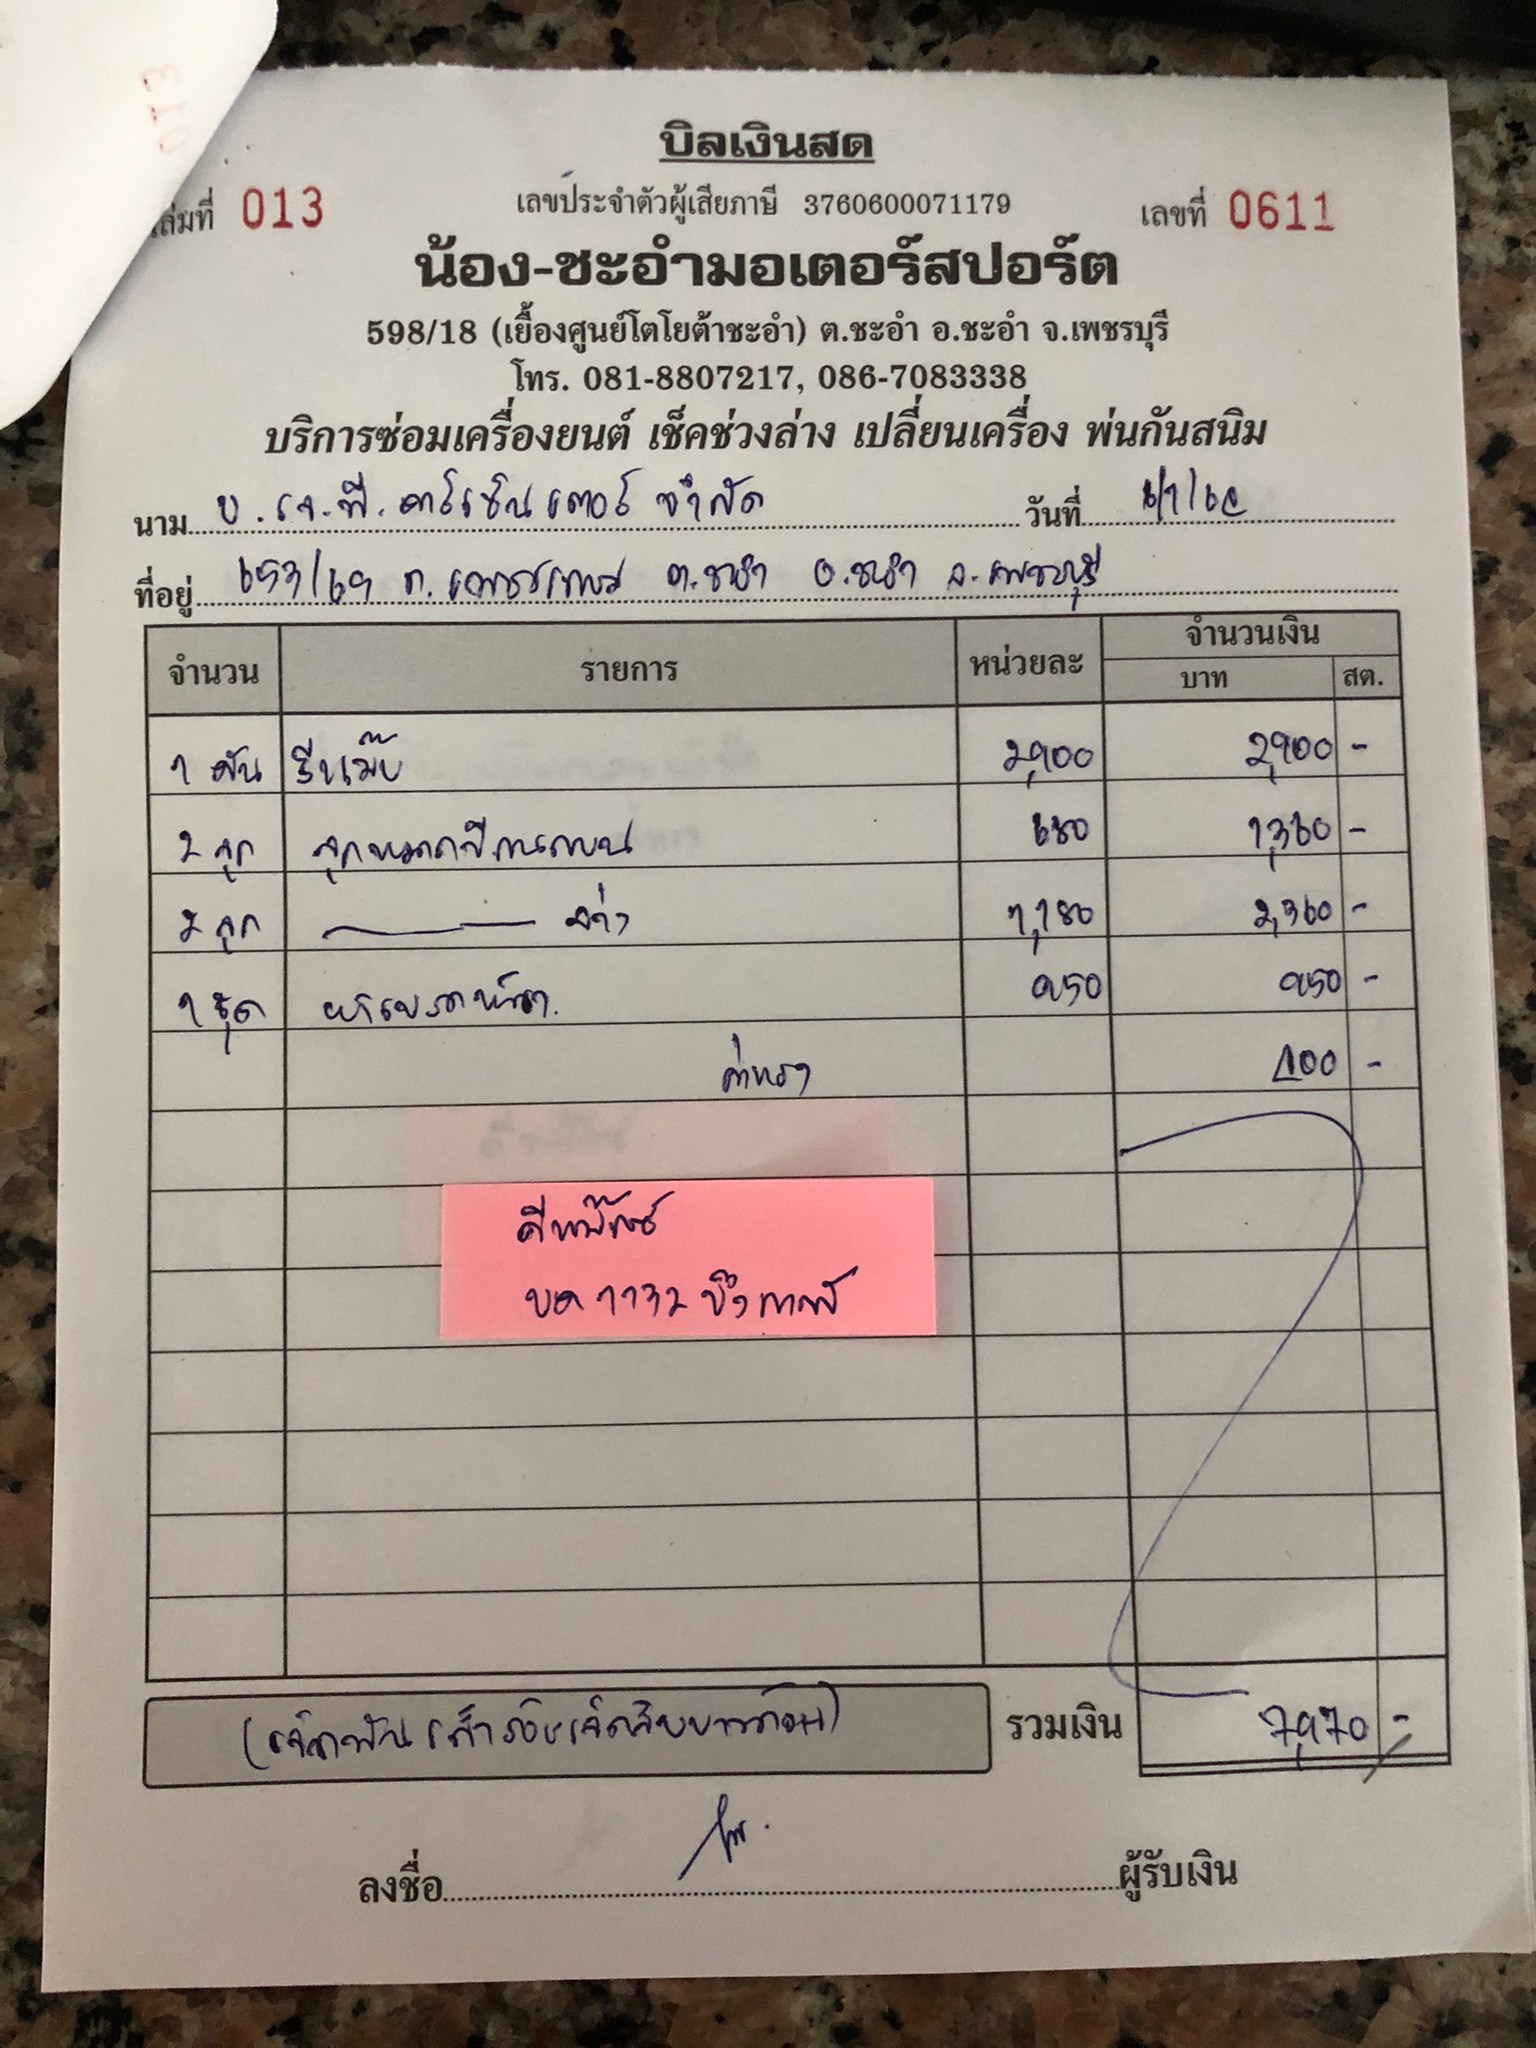 บิลเงินสด
เล่มที่ 013 เลขประจำตัวผู้เสียภาษี 3760600071179 เลขที่ 0611
น้อง-ชะอำมอเตอร์สปอร์ต
598/18 (เยื้องศูนย์โตโยต้าชะอำ) ต.ชะอำ อ.ชะอำ จ.เพชรบุรี
โทร. 081-8807217, 086-7083338
บริการซ่อมเครื่องยนต์ เช็คช่วงล่าง เปลี่ยนเครื่อง พ่นกันสนิม
นาม บ. เจ.พี. คาร์เซ็นเตอร์ จำกัด วันที่
ที่อยู่ 653/69 ถ. เพชรเกษม ต.ชะอำ อ.ชะอำ จ.เพชรบุรี
จำนวน รายการ หน่วยละ จำนวนเงิน
บาท สต.
1 คัน 2,900 2,900 -
2 ลูก ลูกหมากปีกนกบน 680 1,360 -
2 ลูก ล่าง 1,180 2,360 -
1 ชุด ผ้าเบรคหน้า 950 950 -
ค่าแรง 400 -
บค 1132 บึงกาฬ
(เจ็ดพันเก้าร้อยเจ็ดสิบบาทถ้วน) รวมเงิน 7,970 -
ลงชื่อ ผู้รับเงิน